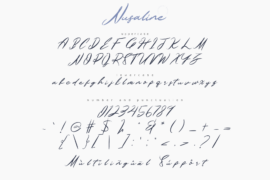 Nusaline
UPPERCASE
ABCDEFGHIJKLM
NOPQRSTUVWXYZ
LOWERCASE
abcdefghijklmnopqrstuvwxyz
0123456789
Multilingual Support